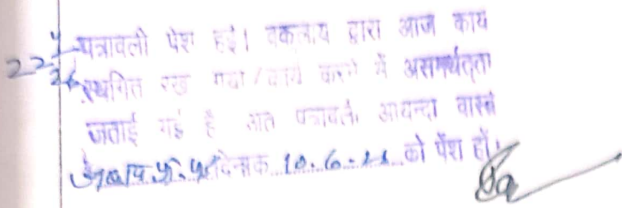 22/4/26 पत्रावली पेश हुई। वकलाय द्वारा आज कार्य
स्थगित रख गया/कार्य करने में असमर्थतृता
जताई गई है अत पत्रावली आयन्दा वास्ते
दिनांक 10.6.21 को पेश हों।